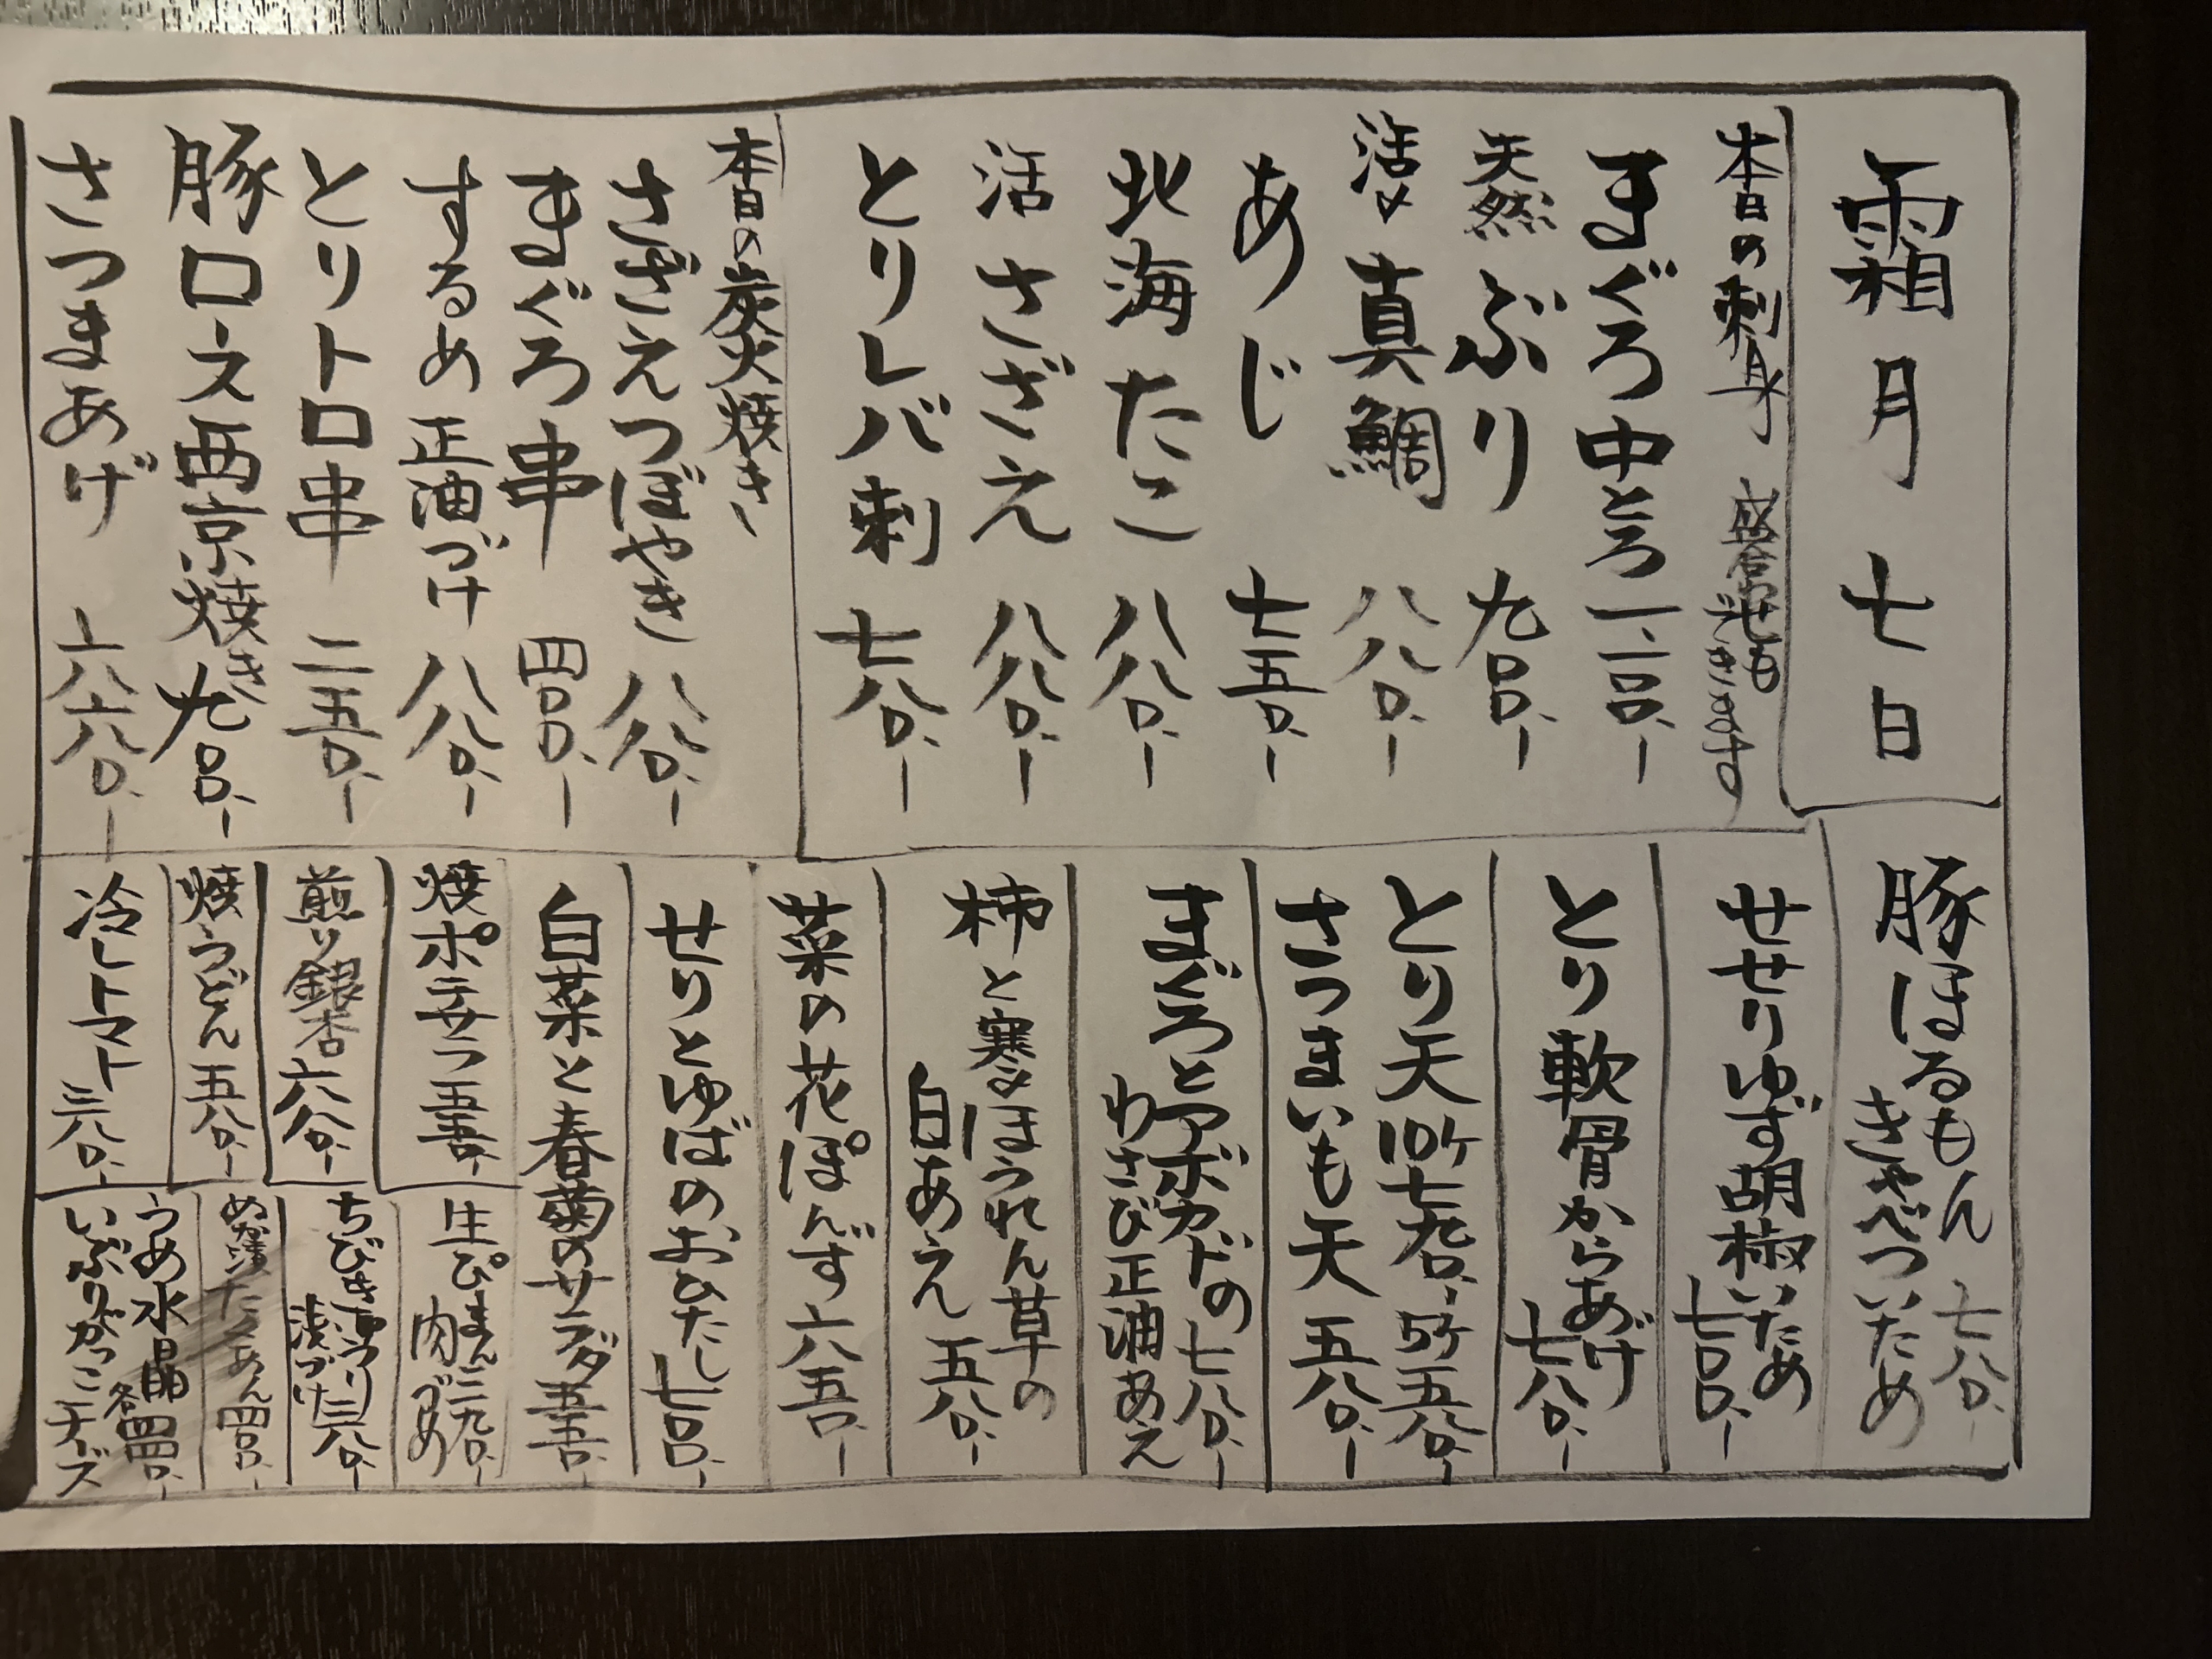 霜月七日
本日の刺身 盛合せもできます
まぐろ中とろ 一、一〇〇、ー
天然ぶり 九〇〇、ー
活〆真鯛 八八〇、ー
あじ 七五〇、ー
北海たこ 八八〇、ー
活さざえ 八八〇、ー
とりレバ刺 七八〇、ー
本日の炭火焼き
さざえつぼやき 八八〇、ー
まぐろ串 四〇〇、ー
するめ正油づけ 八八〇、ー
とりトロ串 二五〇、ー
豚ロース西京焼き 九〇〇、ー
さつまあげ 六八〇、ー
豚ほるもん 七八〇、ー
きゃべついため
せせりゆず胡椒いため
七〇〇、ー
とり軟骨からあげ
七八〇、ー
とり天 10ケ七九〇、5ケ五八〇、ー
さつまいも天 五八〇、ー
まぐろとアボカドの 七八〇、ー
わさび正油あえ
柿と寒〆ほうれん草の
白あえ 五八〇、ー
菜の花ぽんず 六五〇、ー
せりとゆばのおひたし 七〇〇、ー
白菜と春菊のサラダ 五五〇、ー
焼ポテサラ 五五〇、ー
煎り銀杏 六八〇、ー
焼うどん 五八〇、ー
冷しトマト 三八〇、ー
生ぴーまん 三九〇、ー
肉づめ
三八〇、ー
浅づけ
たくあん 四〇〇、ー
うめ水晶 各四四〇、ー
いぶりがっこチーズ